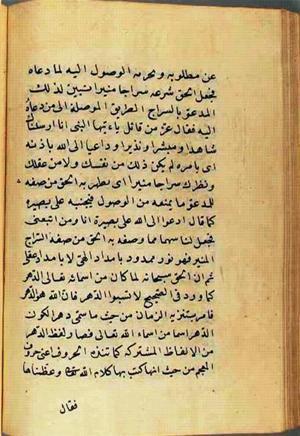 عن مطلوبه ويحرمه الوصول اليه لما دعاه
فجعل الحق شرعه سراجا منيرا نتبين لذلك
المدعو بالسراج الطريق الموصلة الى من دعاه
اليه فقال عز من قائل يا ءيها النبي انا ارسلناك
شاهدا ومبشرا ونذيرا وداعيا الى الله باذنه
اي بامره لم يكن ذلك من نفسك ولا من عقلك
ونظرك سراجا منيرا اى يظهر به الحق من صفة
للمدعو ما يمنعه من الوصول فيجتنبه على بصيرة
كما قال ادعوا الى الله على بصيرة انا ومن اتبعنى
فجعل لنا سهما مما وصفه به الحق من صفة السراج
المنير فهو نور ممدود بامداد الهى لا بامداد عقلى
ثم ان الحق سبحانه لما كان من اسمائه تعالى الدهر
كما ورد فى الصحيح لا تسبوا الدهر فان الله هو الدهر
فامر بتنزيه الزمان من حيث ما سمى دهرا لكون
الدهر اسما من اسماء الله تعالى فصار لفظ الدهر
من الالفاظ المشتركة كما تنزه الحروف اعنى حروف
المعجم من حيث انها كتب بها كلام الله وعظمناها
فقال